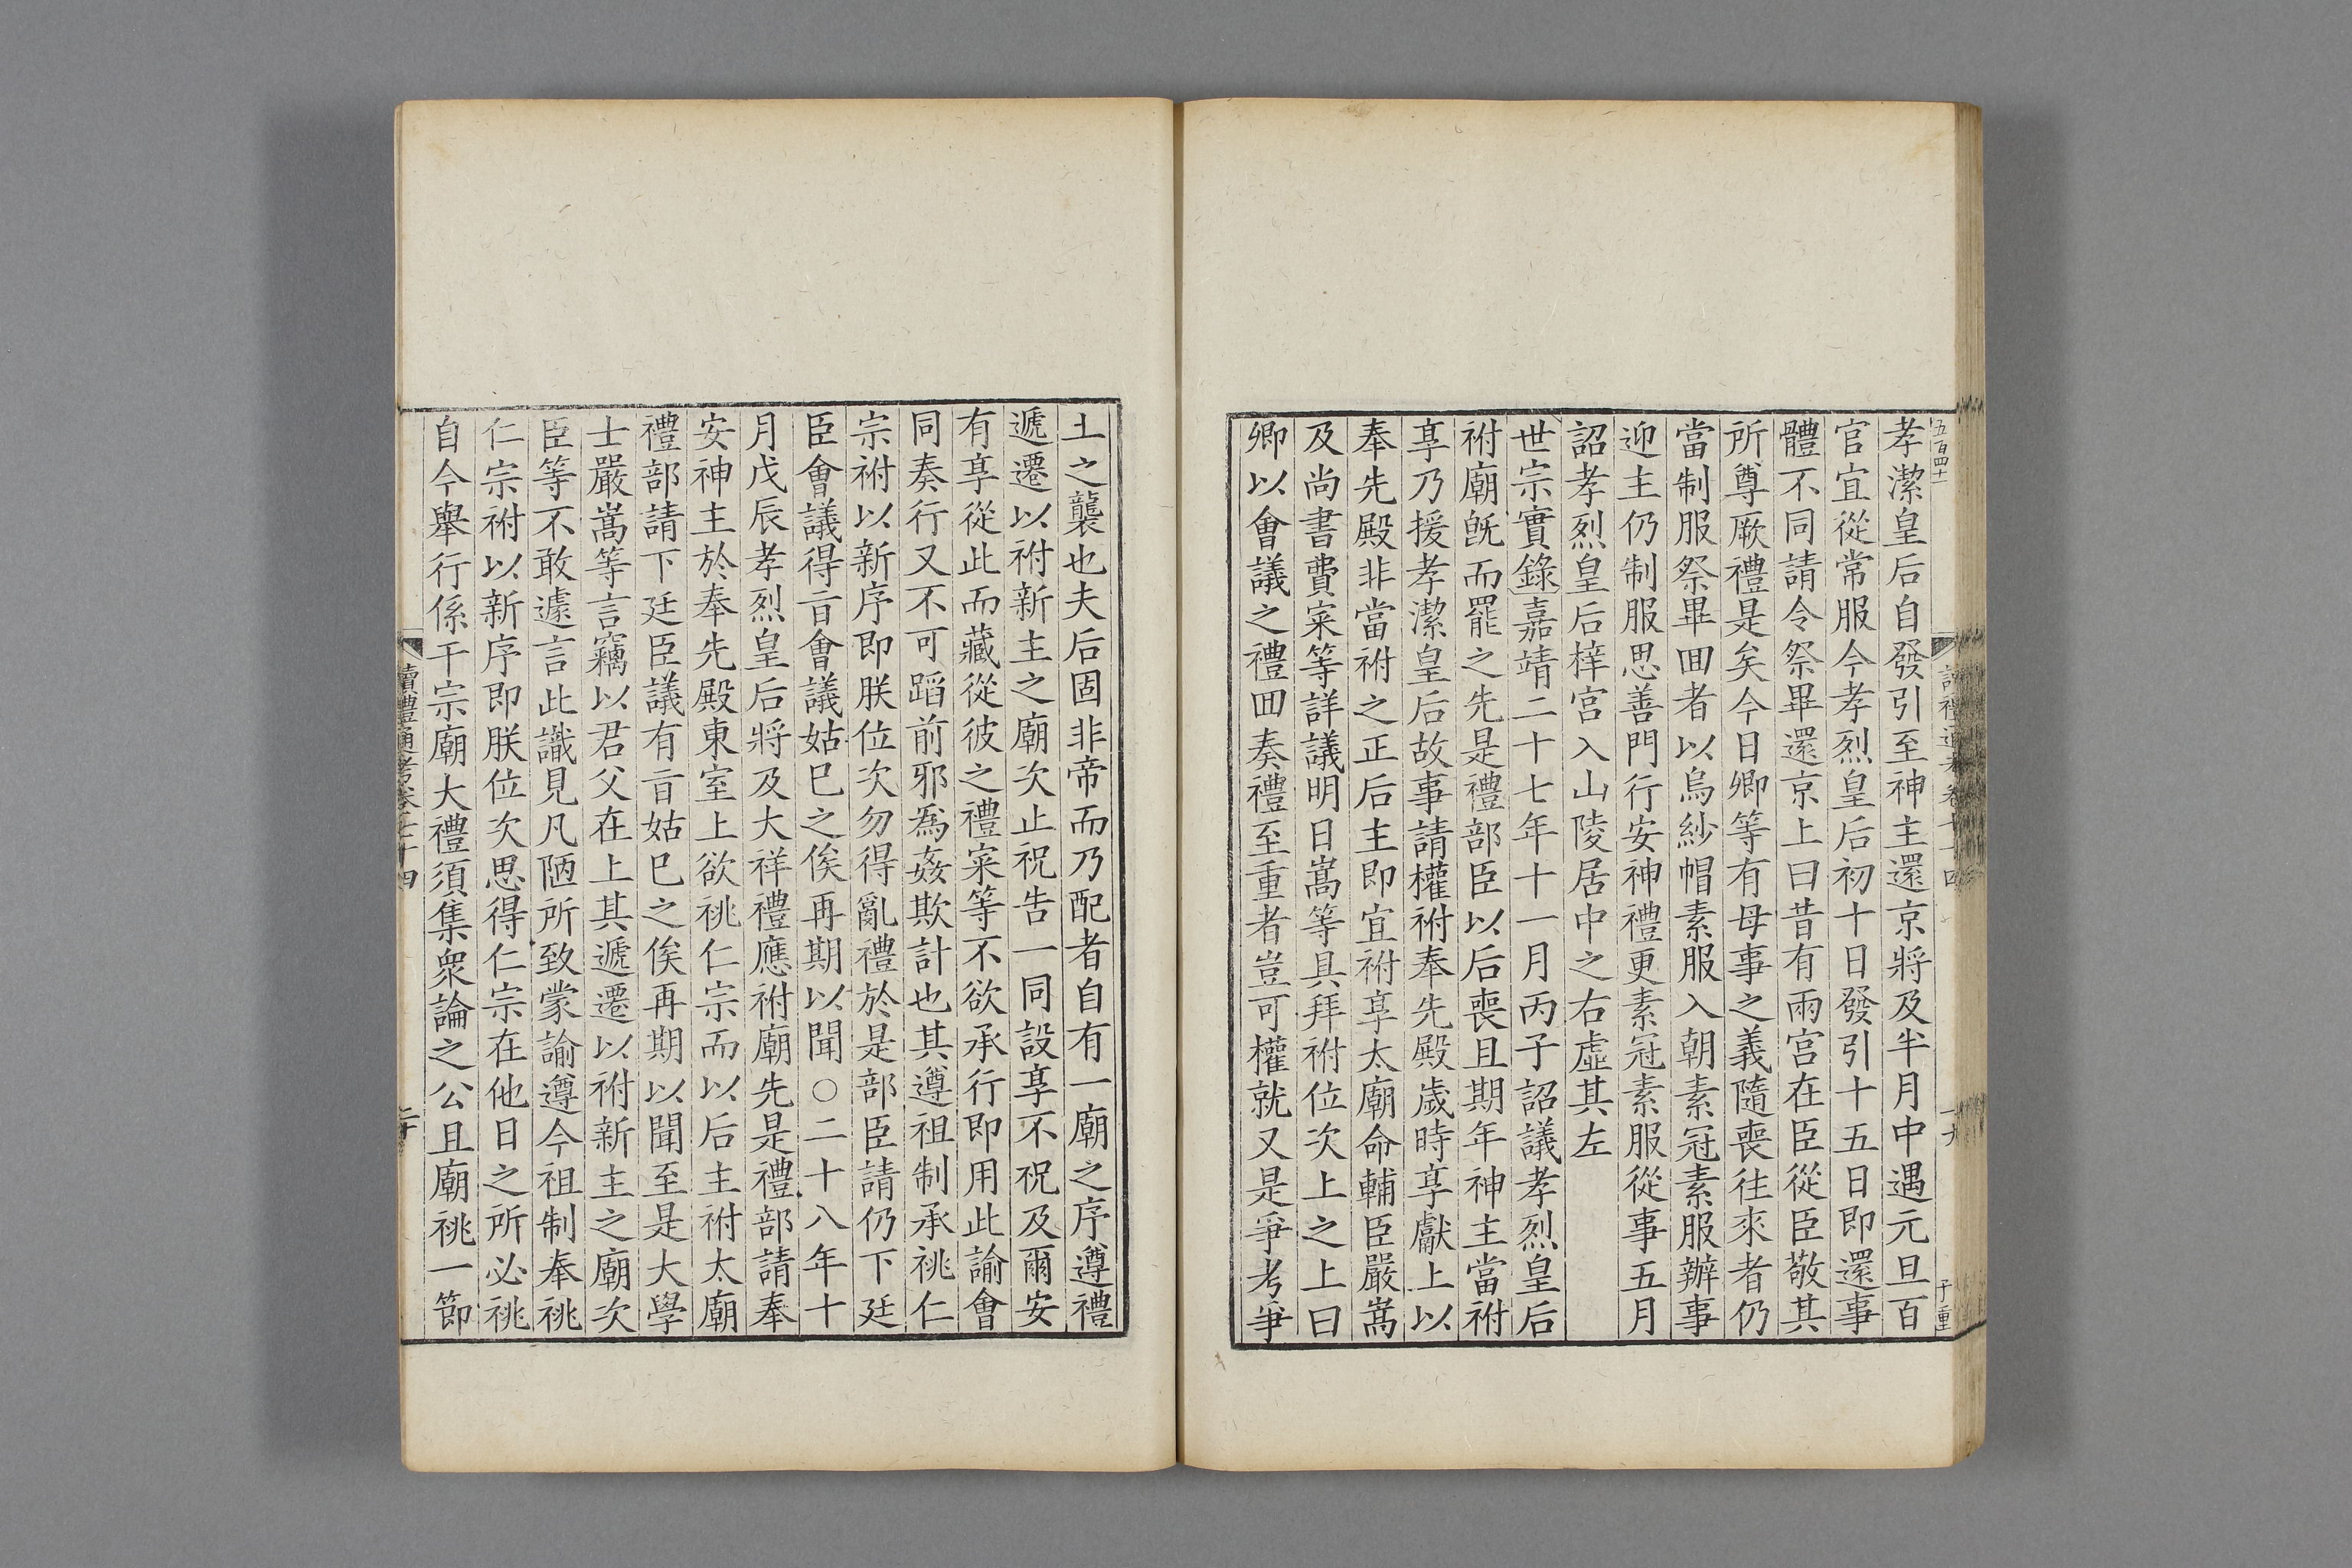 五百四十
孝潔皇后自發引至神主還京將及半月中遇元旦百
官宜從常服今孝烈皇后初十日發引十五日即還事
體不同請令祭畢還京上曰昔有兩宮在臣從臣敬其
所尊厥禮是矣今日卿等有母事之義隨喪往來者仍
當制服祭畢囬者以烏紗帽素服入朝素冠素服辦事
迎主仍制服思善門行安神禮更素冠素服從事五月
詔孝烈皇后梓宮入山陵居中之右虛其左
世宗實錄嘉靖二十七年十一月丙子詔議孝烈皇后
祔廟旣而罷之先是禮部臣以后喪且期年神主當祔
享乃援孝潔皇后故事請權祔奉先殿歲時享獻上以
奉先殿非當祔之正后主即宜祔享太廟命輔臣嚴嵩
及尚書費寀等詳議明日嵩等具拜祔位次上之上曰
卿以會議之禮囬奏禮至重者豈可權就又是爭考爭
土之襲也夫后固非帝而乃配者自有一廟之序遵禮
遞遷以祔新主之廟次止祝告一同設享不祝及爾安
有享從此而藏從彼之禮寀等不欲承行即用此諭會
同奏行又不可蹈前邪爲姦欺計也其遵祖制承祧仁
宗祔以新序即朕位次勿得亂禮於是部臣請仍下廷
臣會議得㫖會議姑已之俟再期以聞○二十八年十
月戊辰孝烈皇后將及大祥禮應祔廟先是禮部請奉
安神主於奉先殿東室上欲祧仁宗而以后主祔太廟
禮部請下廷臣議有㫖姑已之俟再期以聞至是大學
士嚴嵩等言竊以君父在上其遞遷以祔新主之廟次
臣等不敢遽言此識見凡陋所致蒙諭遵今祖制奉祧
仁宗祔以新序即朕位次思得仁宗在他日之所必祧
自今舉行係干宗廟大禮須集衆論之公且廟祧一節
讀禮通考卷七十四
二十